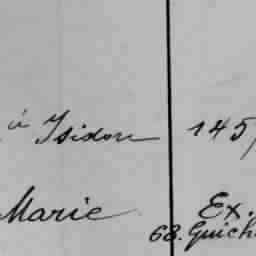 à Isidore 145
Marie Ex.
68. Guich